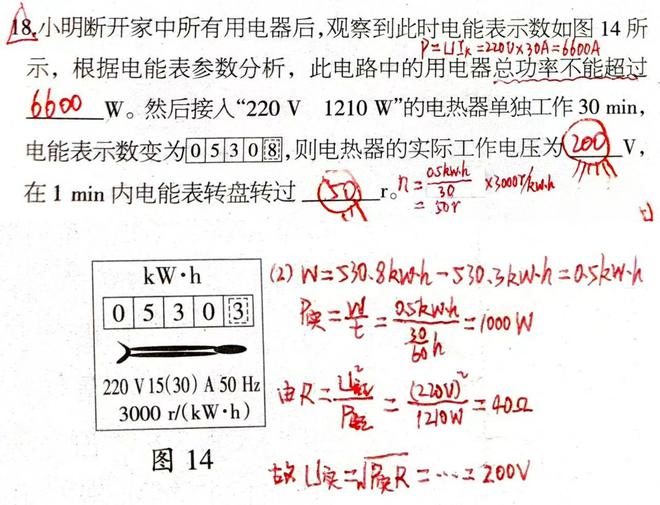 18.小明断开家中所有用电器后,观察到此时电能表示数如图 14 所
P=UIₖ=220V×30A=6600A
示，根据电能表参数分析，此电路中的用电器总功率不能超过
6600 W。然后接入“220 V 1210 W”的电热器单独工作 30 min，
电能表示数变为05308,则电热器的实际工作电压为 200 V，
在 1 min 内电能表转盘转过 50 r。n=0.5kw·h/30 ×3000r/kw·h
=50r
kW·h
0 5 3 0 3
220 V 15(30) A 50 Hz
3000 r/(kW·h)
图 14
(2) W=530.8kw·h-530.3kw·h=0.5kw·h
P实=W/t=0.5kw·h/(30/60 h)=1000W
由R=U额²/P额=(220V)²/1210W=40Ω
故 U实=√P实R=…=200V